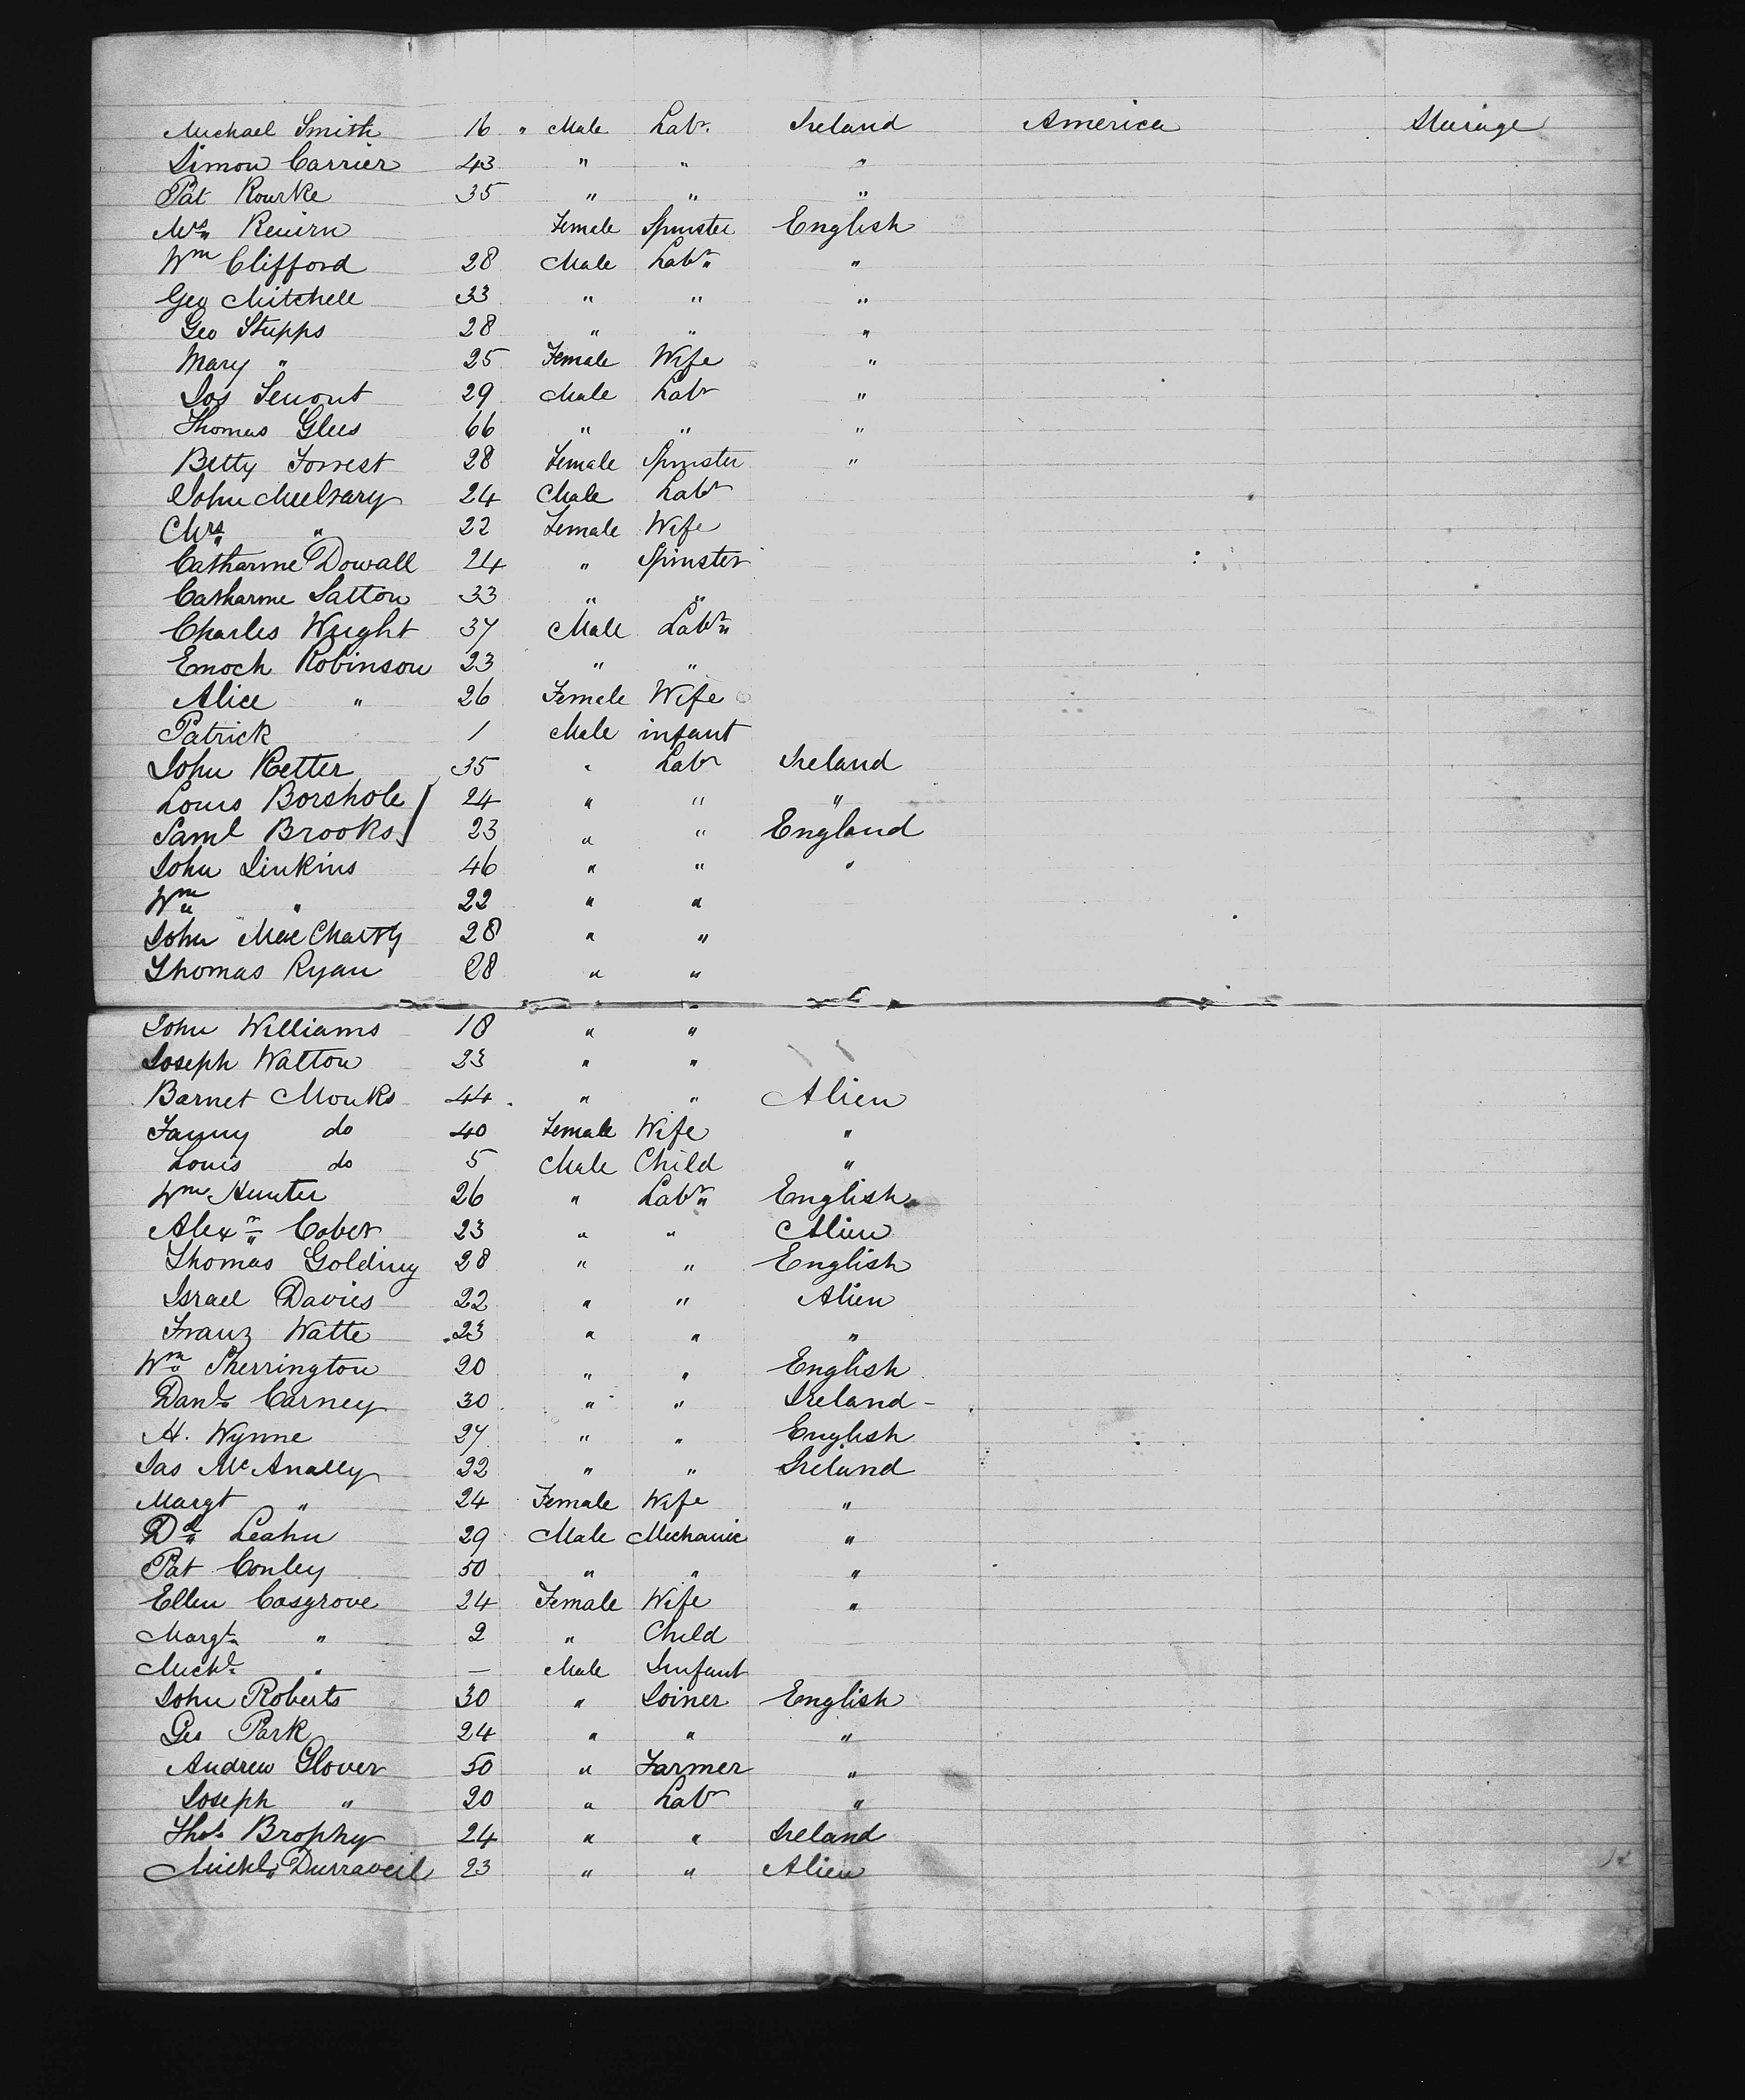 Michael Smith 16 " Male Labr. Ireland America Steirage
Simon Carrier 43 " " "
Pat Rourke 35 " " "
Mrs Female Spinster English
Wm Clifford 28 Male Labr " "
Geo Mitchell 33 " " "
Geo Stupps 28 " " "
Mary " 25 Female Wife "
Jos 29 Male Labr "
Thomas Glees 66 " " "
Betty Forrest 28 Female Spinster "
John 24 Male Labr
Mrs " 22 Female Wife
Catharine Dowall 24 " Spinster
Catharine Satton 33 " "
Charles Wright 37 Male Labr
Enoch Robinson 23 " "
Alice " 26 Female Wife
Patrick 1 Male infant
John Retter 35 " Labr Ireland
Louis Borshole 24 " " "
Saml Brooks 23 " " England
John Jinkins 46 " " "
Wm " 22 " "
John MacCharty 28 " "
Thomas Ryan 28 " "
John Williams 18 " "
Joseph Walton 23 " "
Barnet Monks 44 " " Alien
Fanny do 40 Female Wife "
Louis do 5 Male Child "
Wm Hunter 26 " Labr English
Alexr Cober 23 " " Alien
Thomas Golding 28 " " English
Israel Davies 22 " " Alien
Franz Watte 23 " " "
Wm Sherrington 20 " " English
Danl Carney 30 " " Ireland -
H. Wynne 27 " " English
Jas McAnally 22 " " Ireland
Margt " 24 Female Wife "
Dd Leahu 29 Male Mechanic "
Pat Conley 50 " " "
Ellen Cosgrove 24 Female Wife "
Margt " 2 " Child
Michl " — Male Infant
John Roberts 30 " Joiner English
Geo Park 24 " " "
Andrew Glover 50 " Farmer "
Joseph " 20 " Labr "
Thos Brophy 24 " " Ireland
Michl Durraveil 23 " " Alien